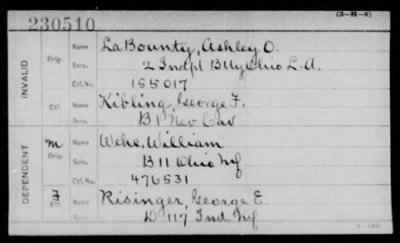 (3-H-4)
230510
INVALID
Orig.
Name LaBounty, Ashley O.
Serv. 2 Indpt Btty Ohio L.A.
Ctf. No. 155017
Ctf.
Name Kibling, George F.
Serv. B 1 Nev Cav
DEPENDENT
M Orig.
Name Wehe, William
Serv. B 11 Ohio Inf
Ctf. No. 476531
Name Risinger, George E.
Serv. D 117 Ind Inf